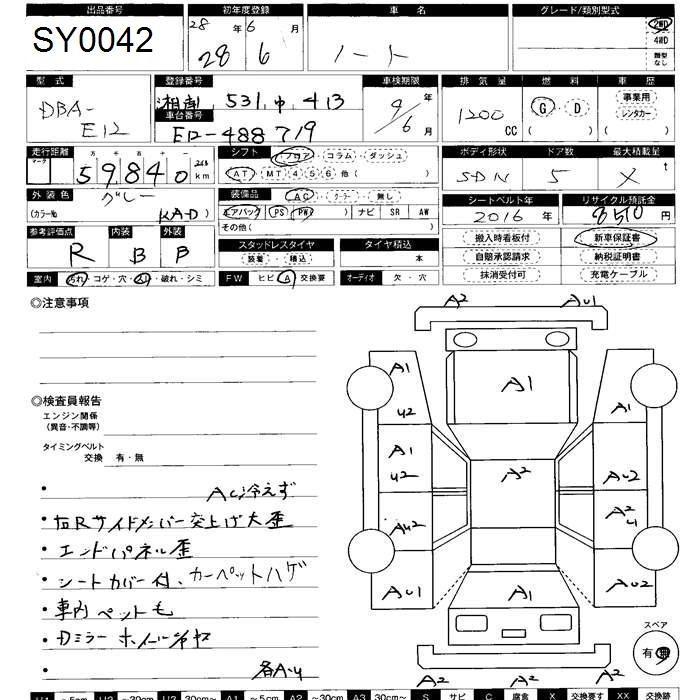 出品番号 初年度登録 車 名 グレード/類別型式
SY0042 28 年 6 月 2WD
28 6 ノート 4WD
類型なし
型 式 登録番号 車検期限 排 気 量 燃 料 車 歴
DBA- 湘南 531 ゆ 413 年 1200 G・D 事業用
E12 車台番号 6 月 CC ( ) レンタカー
E12-488719 ( )
走行距離 シフト フロア・コラム・ダッシュ ボディ形状 ドア数 最大積載量
マーク 万 千 百 十 AT・MT 4 5 6 他 ( ) SDN 5 X t
59840 km
外 装 色 グレー 装備品 AC・クーラー・無し シートベルト年 リサイクル預託金
(カラーNo KAD) エアバック PS PW ) ナビ SR AW 2016 年 8510 円
参考評価点 内装 外装 その他 ( ) 搬入時看板付 新車保証書
R B B スタッドレスタイヤ タイヤ積込 自賠承認請求 納税証明書
装着・積込 本 抹消受付可 充電ケーブル
室内 汚れ・コゲ・穴・スリ・破れ・シミ FW ヒビ A 交換要 オーディオ 欠・穴
◎注意事項
A2 AU1
A1 A1
U2 A1
◎検査員報告
エンジン関係
(異音・不調等)
タイミングベルト
交換 有・無
A1 A2 AU2
U2
AU2 A2
U
AU1 A1 AU2
・ AC冷えず
・右Rサイドメンバー突上げ大歪
・エンドパネル歪
・シートカバー付、カーペットハゲ
・車内ペット毛
・Dミラー ホイール
各A・U
スペア
有・無
A2 A2 A2
U1 ~5cm U2 ~20cm U3 30cm~ A1 ~5cm A2 ~30cm A3 30cm~ S サビ C 腐食 X 交換要す XX 交換跡